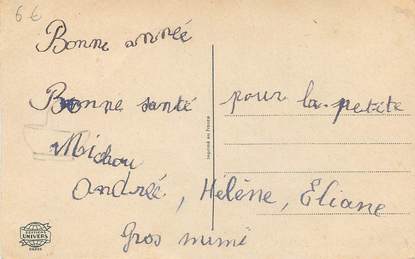 6€
Bonne année
Bonne santé pour la petite
Michou
Andrée, Hélène, Eliane
Gros mimi
Imprimé en France
EDITIONS
UNIVERS
PARIS